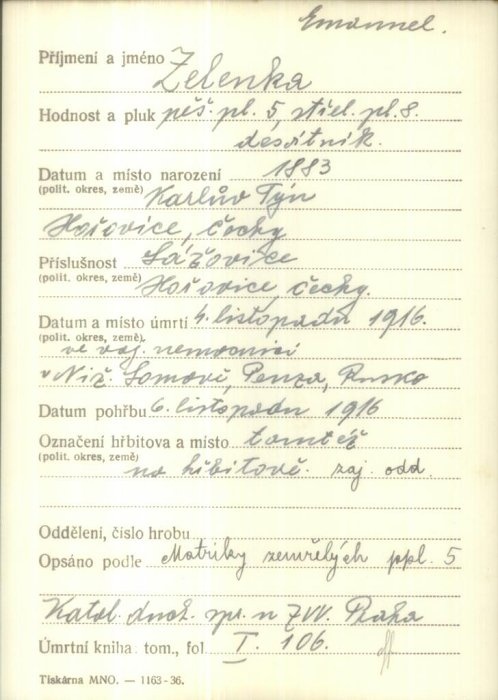 Emanuel.
Příjmení a jméno Zelenka
Hodnost a pluk pěš. pl. 5, střel. pl. 8.
desátník.
Datum a místo narození 1883
(polit. okres, země) Karlův Týn
Hořovice, Čechy
Příslušnost Lážovice
(polit. okres, země) Hořovice Čechy.
Datum a místo úmrtí 4. listopadu 1916.
(polit. okres, země) ve voj. nemocnici
v Niž. Lomově, Penza, Rusko
Datum pohřbu 6. listopadu 1916
Označení hřbitova a místo tamtéž
(polit. okres, země) na hřbitově zaj. odd.
Oddělení, číslo hrobu
Opsáno podle Matriky zemřelých ppl. 5
Katol. duch. spr. n ZVV. Praha
Úmrtní kniha: tom., fol. I. 106.
Tiskárna MNO. — 1163-36.